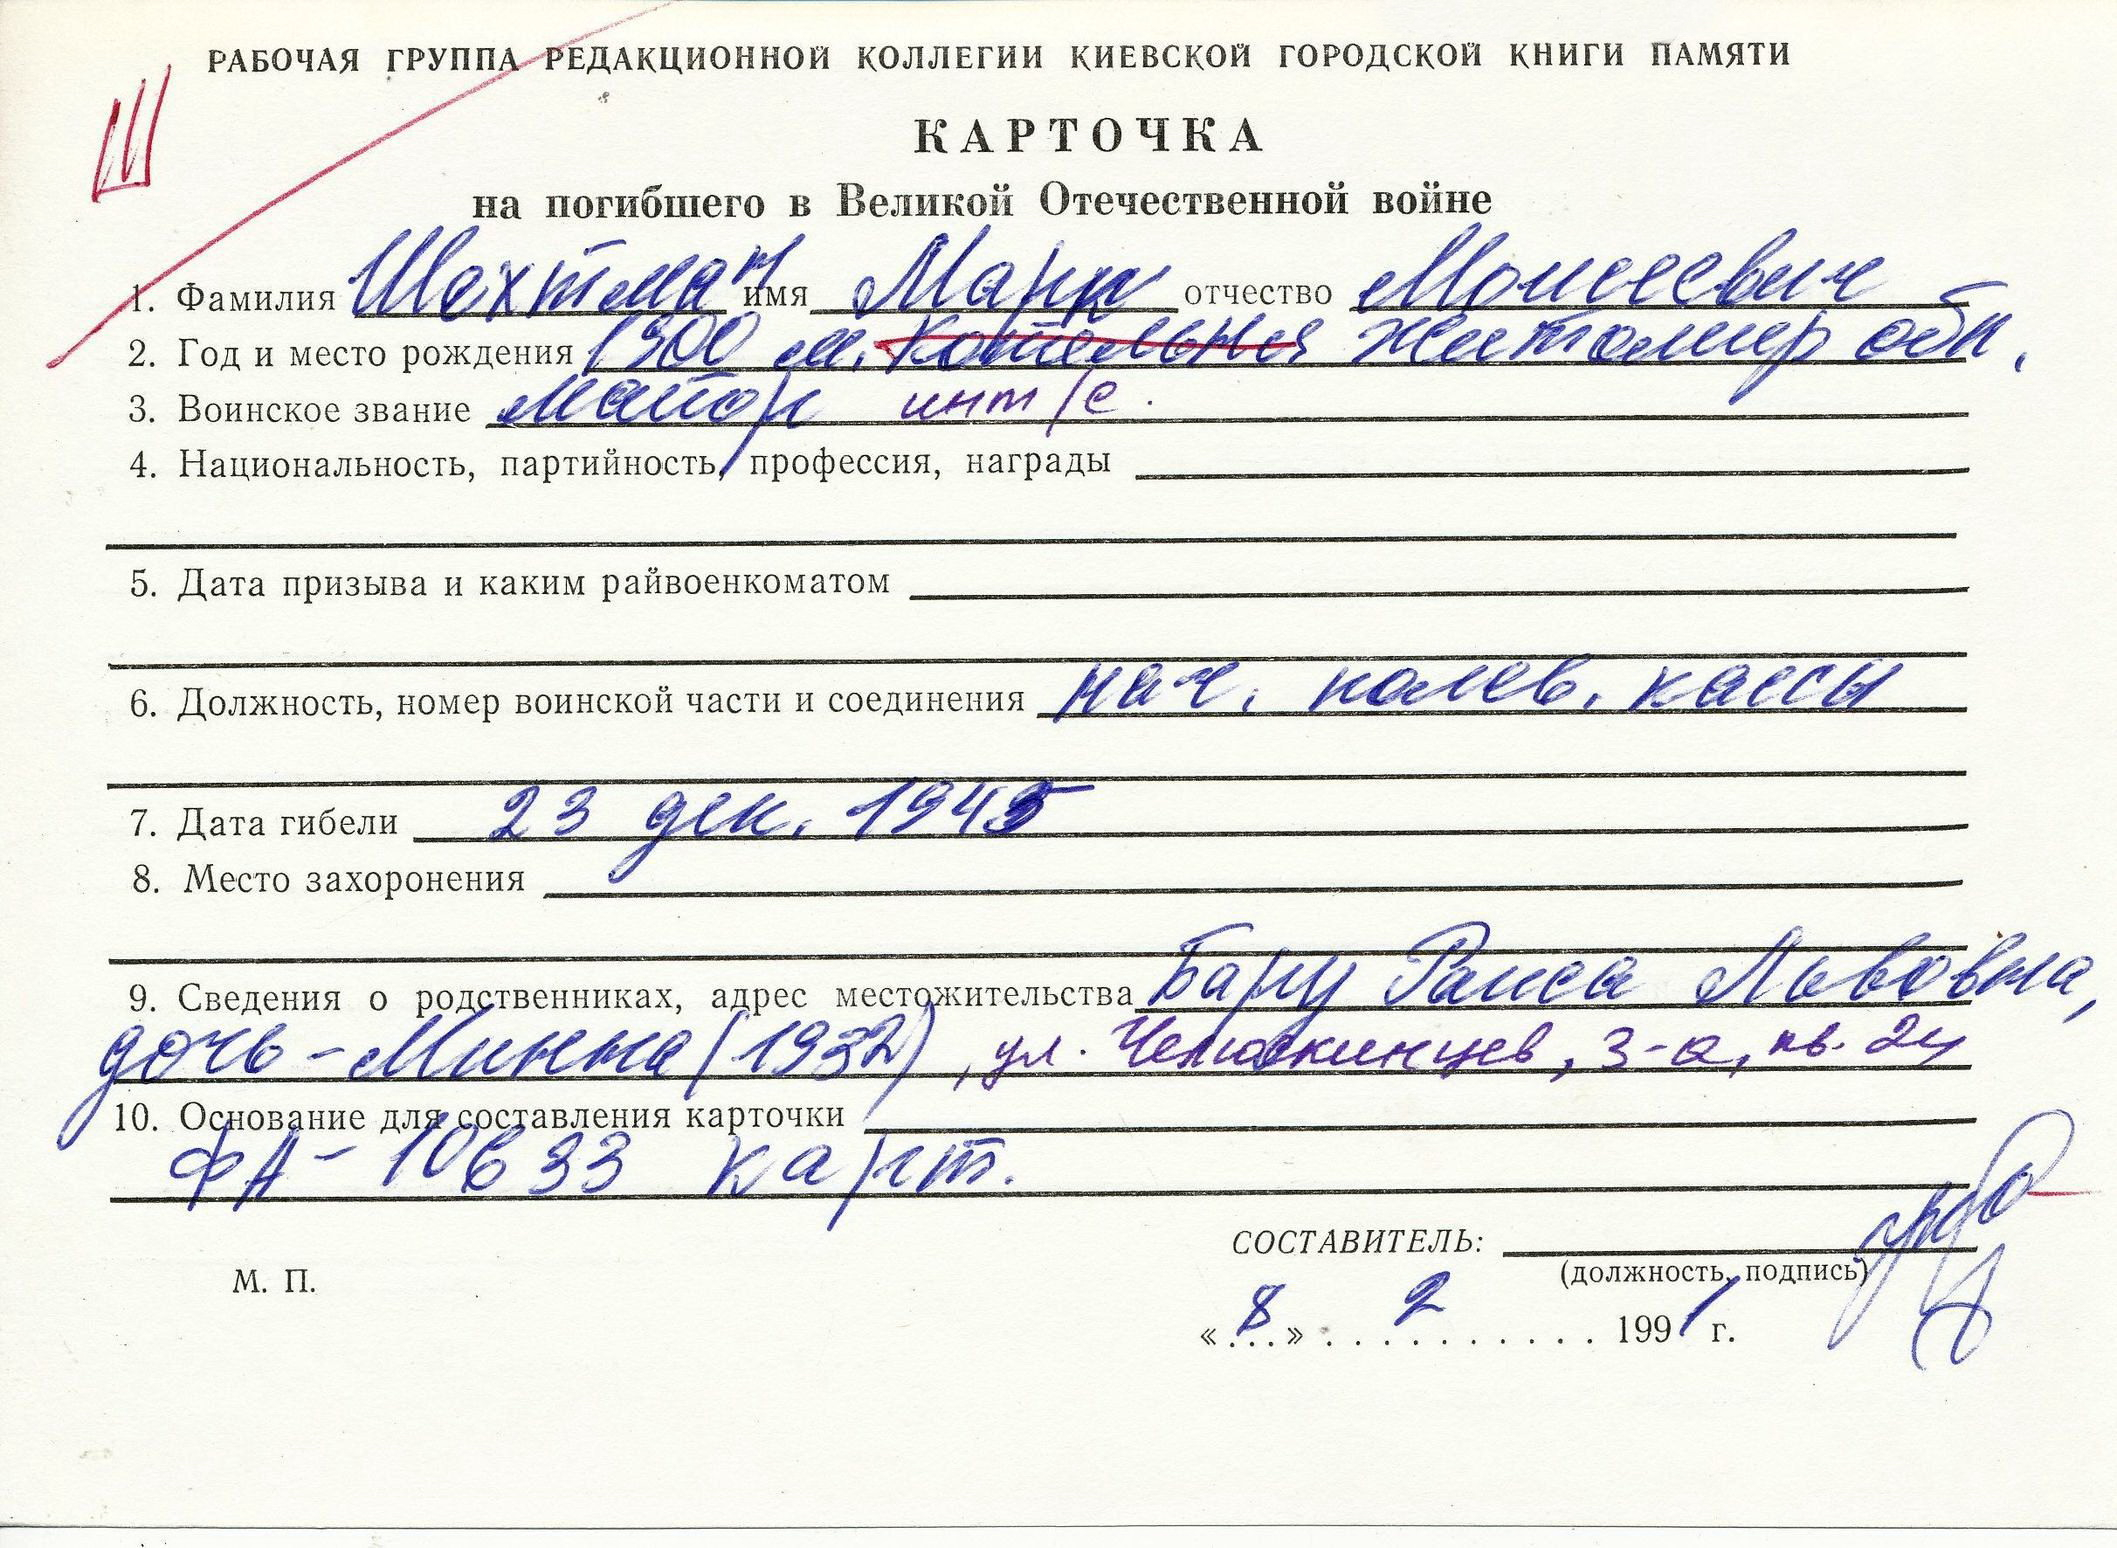 РАБОЧАЯ ГРУППА РЕДАКЦИОННОЙ КОЛЛЕГИИ КИЕВСКОЙ ГОРОДСКОЙ КНИГИ ПАМЯТИ
Ш
КАРТОЧКА
на погибшего в Великой Отечественной войне
1. Фамилия Шехтман имя Марк отчество Моисеевич
2. Год и место рождения 1900 м. Котельня Житомир обл.
3. Воинское звание майор инт/с.
4. Национальность, партийность, профессия, награды
5. Дата призыва и каким райвоенкоматом
6. Должность, номер воинской части и соединения нач. полев. кассы
7. Дата гибели 23 дек. 1945
8. Место захоронения
9. Сведения о родственниках, адрес местожительства Бару Раиса Львовна,
дочь - Минна (1932), ул. Челюскинцев, 3-а, кв. 24
10. Основание для составления карточки
ФА - 10633 карт.
СОСТАВИТЕЛЬ:
(должность, подпись)
М. П.
«8» 2 1991 г.